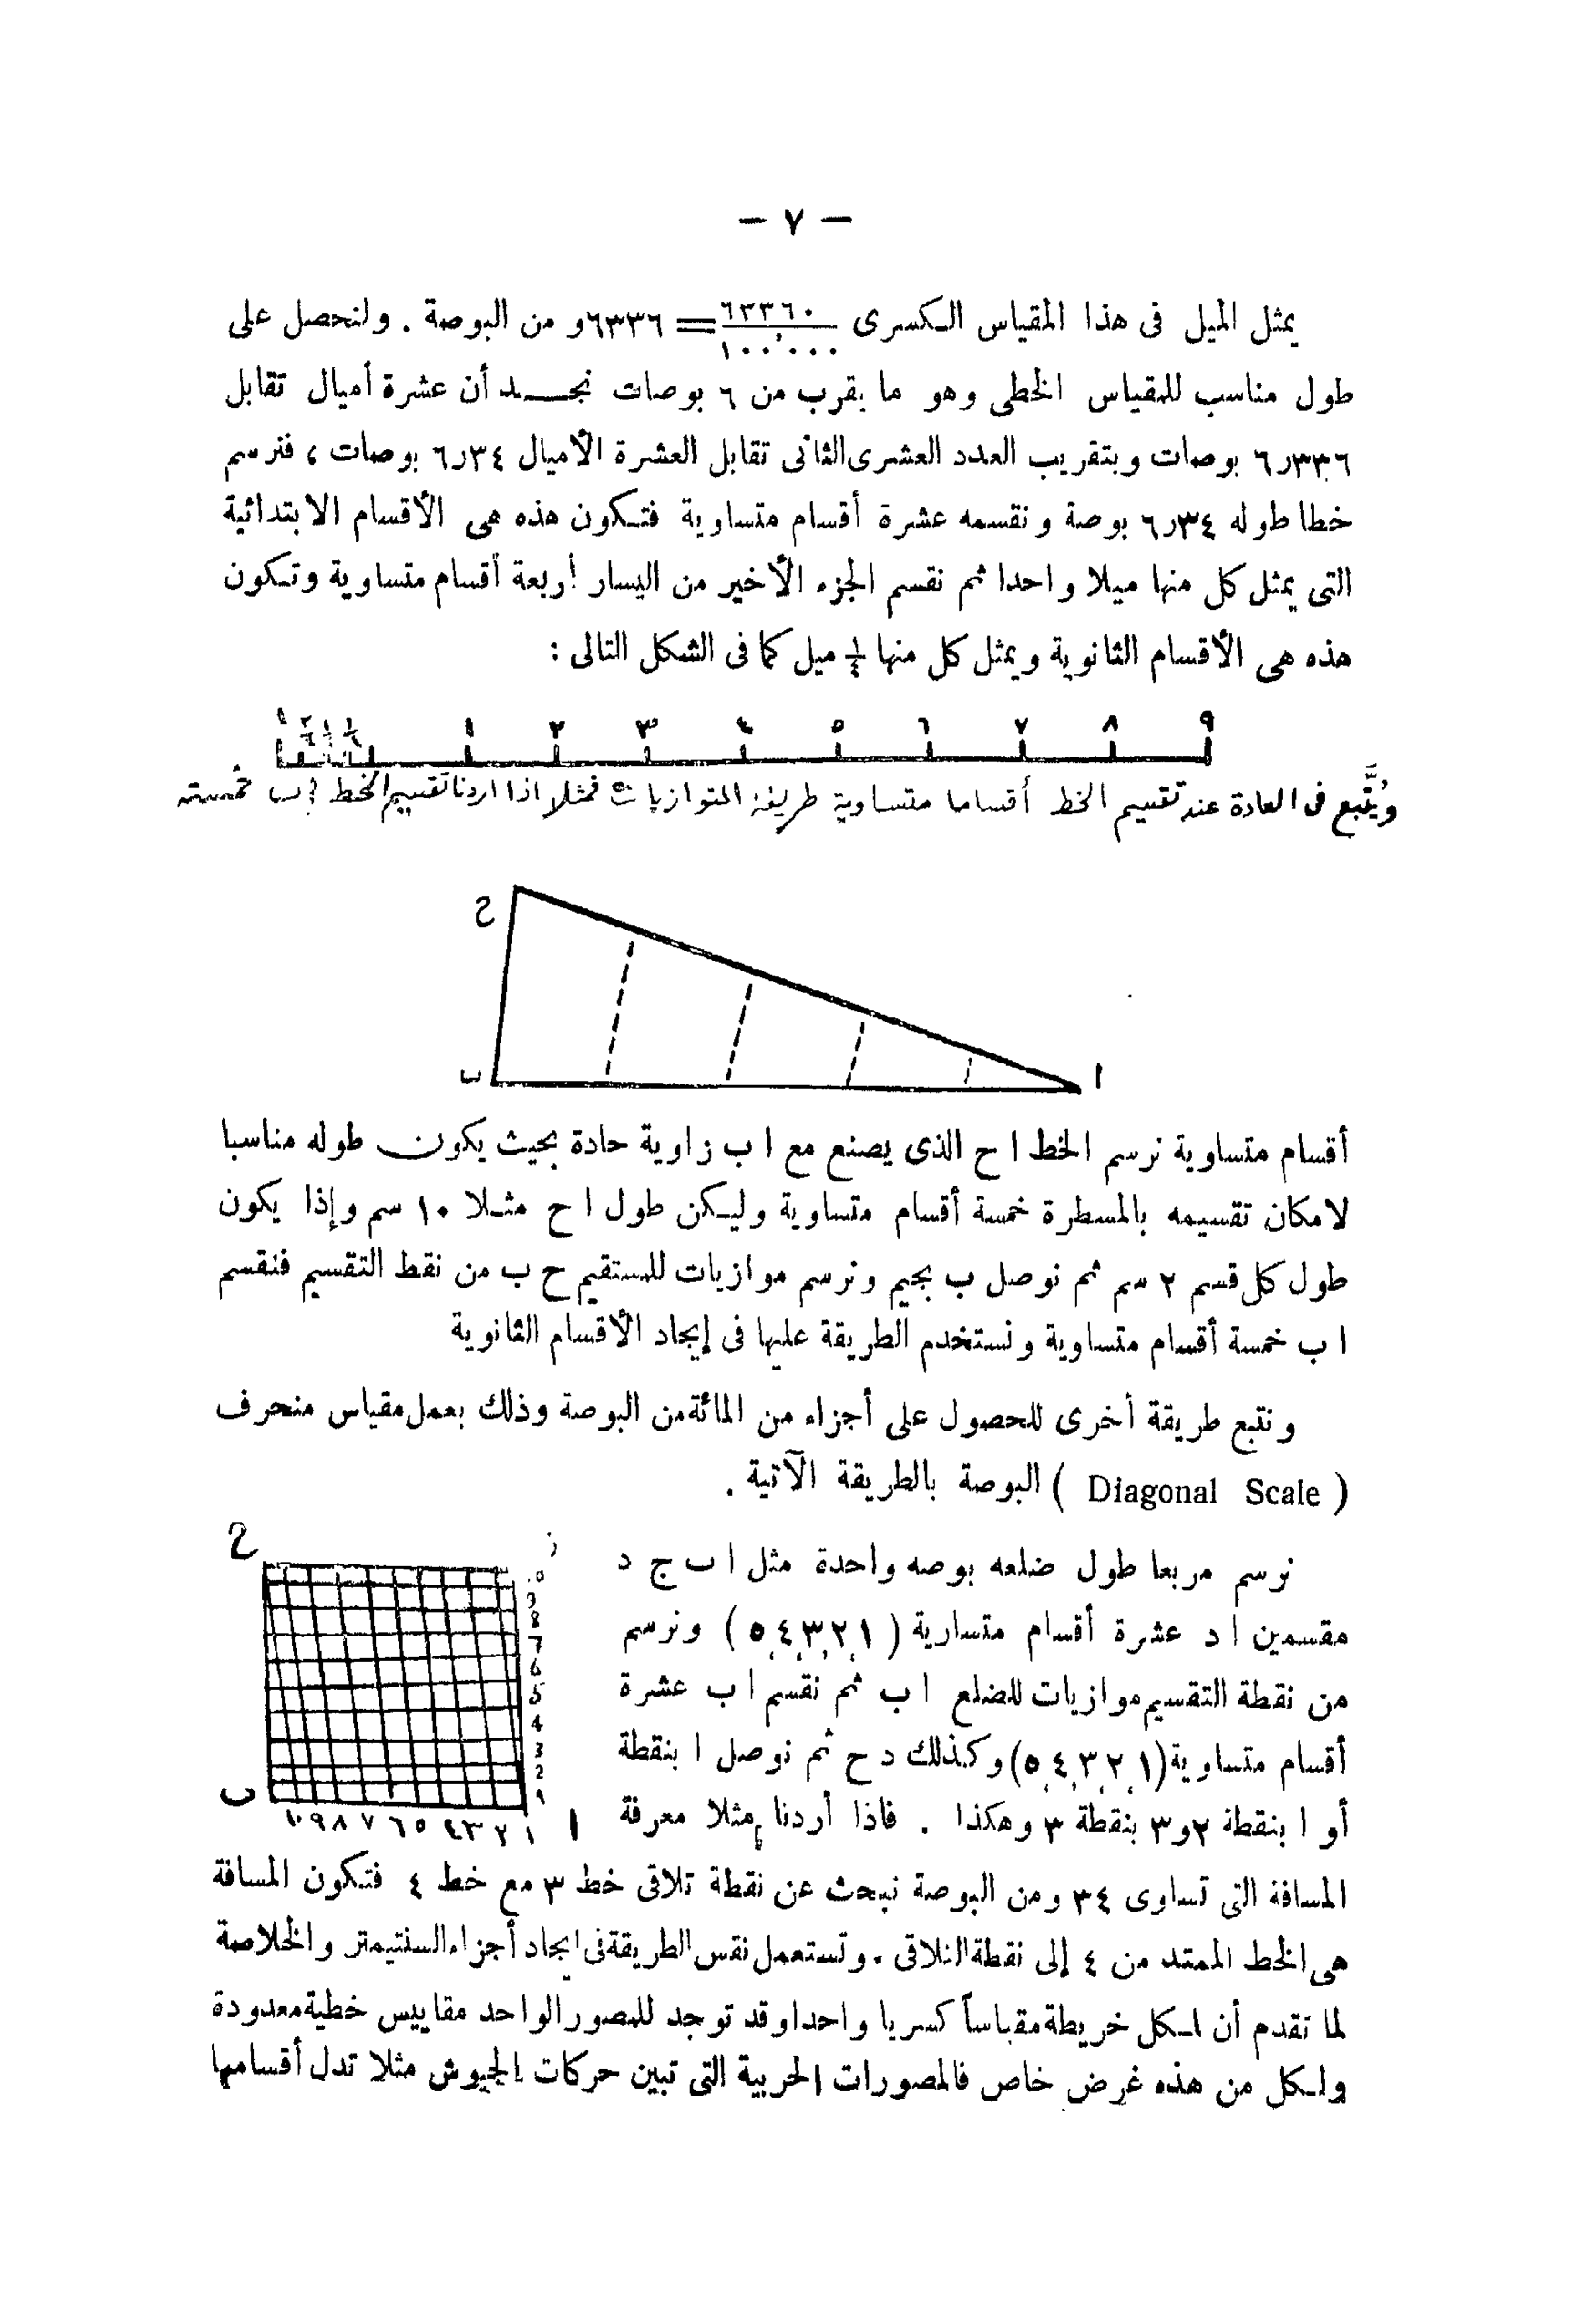 — ٧ —
يمثل الميل فى هذا المقياس الكسرى ٦٣٣٦٠/١٠٠,٠٠٠ = ٦٣٣٦و من البوصة . ولنحصل على
طول مناسب للمقياس الخطى وهو ما يقرب من ٦ بوصات نجد أن عشرة أميال تقابل
٦٫٣٣٦ بوصات وبتقريب العدد العشرى الثانى تقابل العشرة الأميال ٦٫٣٤ بوصات ، فنرسم
خطا طوله ٦٫٣٤ بوصة ونقسمه عشرة أقسام متساوية فتكون هذه هى الأقسام الابتدائية
التى يمثل كل منها ميلا واحدا ثم نقسم الجزء الأخير من اليسار أربعة أقسام متساوية وتكون
هذه هى الأقسام الثانوية ويمثل كل منها ¼ ميل كما فى الشكل التالى :
١ ٢ ٣ ٤ ٥ ٦ ٧ ٨ ٩
ويُتَّبع فى العادة عند تقسيم الخط أقساما متساوية طريقة المتوازيات فمثلا اذا اردنا تقسيم الخط ا ب خمسة
ح
ب
ا
أقسام متساوية نرسم الخط ا ح الذى يصنع مع ا ب زاوية حادة بحيث يكون طوله مناسبا
لامكان تقسيمه بالمسطرة خمسة أقسام متساوية وليكن طول ا ح مثلا ١٠ سم وإذا يكون
طول كل قسم ٢ سم ثم نوصل ب بجيم ونرسم موازيات للمستقيم ح ب من نقط التقسيم فنقسم
ا ب خمسة أقسام متساوية ونستخدم الطريقة عليها فى إيجاد الأقسام الثانوية
ونتبع طريقة أخرى للحصول على أجزاء من المائة من البوصة وذلك بعمل مقياس منحرف
( Diagonal Scale ) البوصة بالطريقة الآتية .
نرسم مربعا طول ضلعه بوصه واحدة مثل ا ب ج د
مقسمين ا د عشرة أقسام متسارية ( ١,٢,٣,٤,٥ ) ونرسم
من نقطة التقسيم موازيات للضلع ا ب ثم نقسم ا ب عشرة
أقسام متساوية (١,٢,٣,٤,٥) وكذلك د ح ثم نوصل ا بنقطة
أو ا بنقطة ٢و٣ بنقطة ٣ وهكذا . فاذا أردنا مثلا معرفة
ح
9
8
7
6
5
4
3
2
١
ب
١٠ ٩ ٨ ٧ ٦ ٥ ٤ ٣ ٢ ١
ا
المسافة التى تساوى ٣٤ ومن البوصة نبحث عن نقطة تلاقى خط ٣ مع خط ٤ فتكون المسافة
هى الخط الممتد من ٤ إلى نقطة التلاقى . وتستعمل نفس الطريقة فى ايجاد أجزاء السنتيمتر والخلاصة
لما تقدم أن لكل خريطة مقياساً كسريا واحدا وقد توجد للمصور الواحد مقاييس خطية معدودة
ولكل من هذه غرض خاص فالمصورات الحربية التى تبين حركات الجيوش مثلا تدل أقسامها